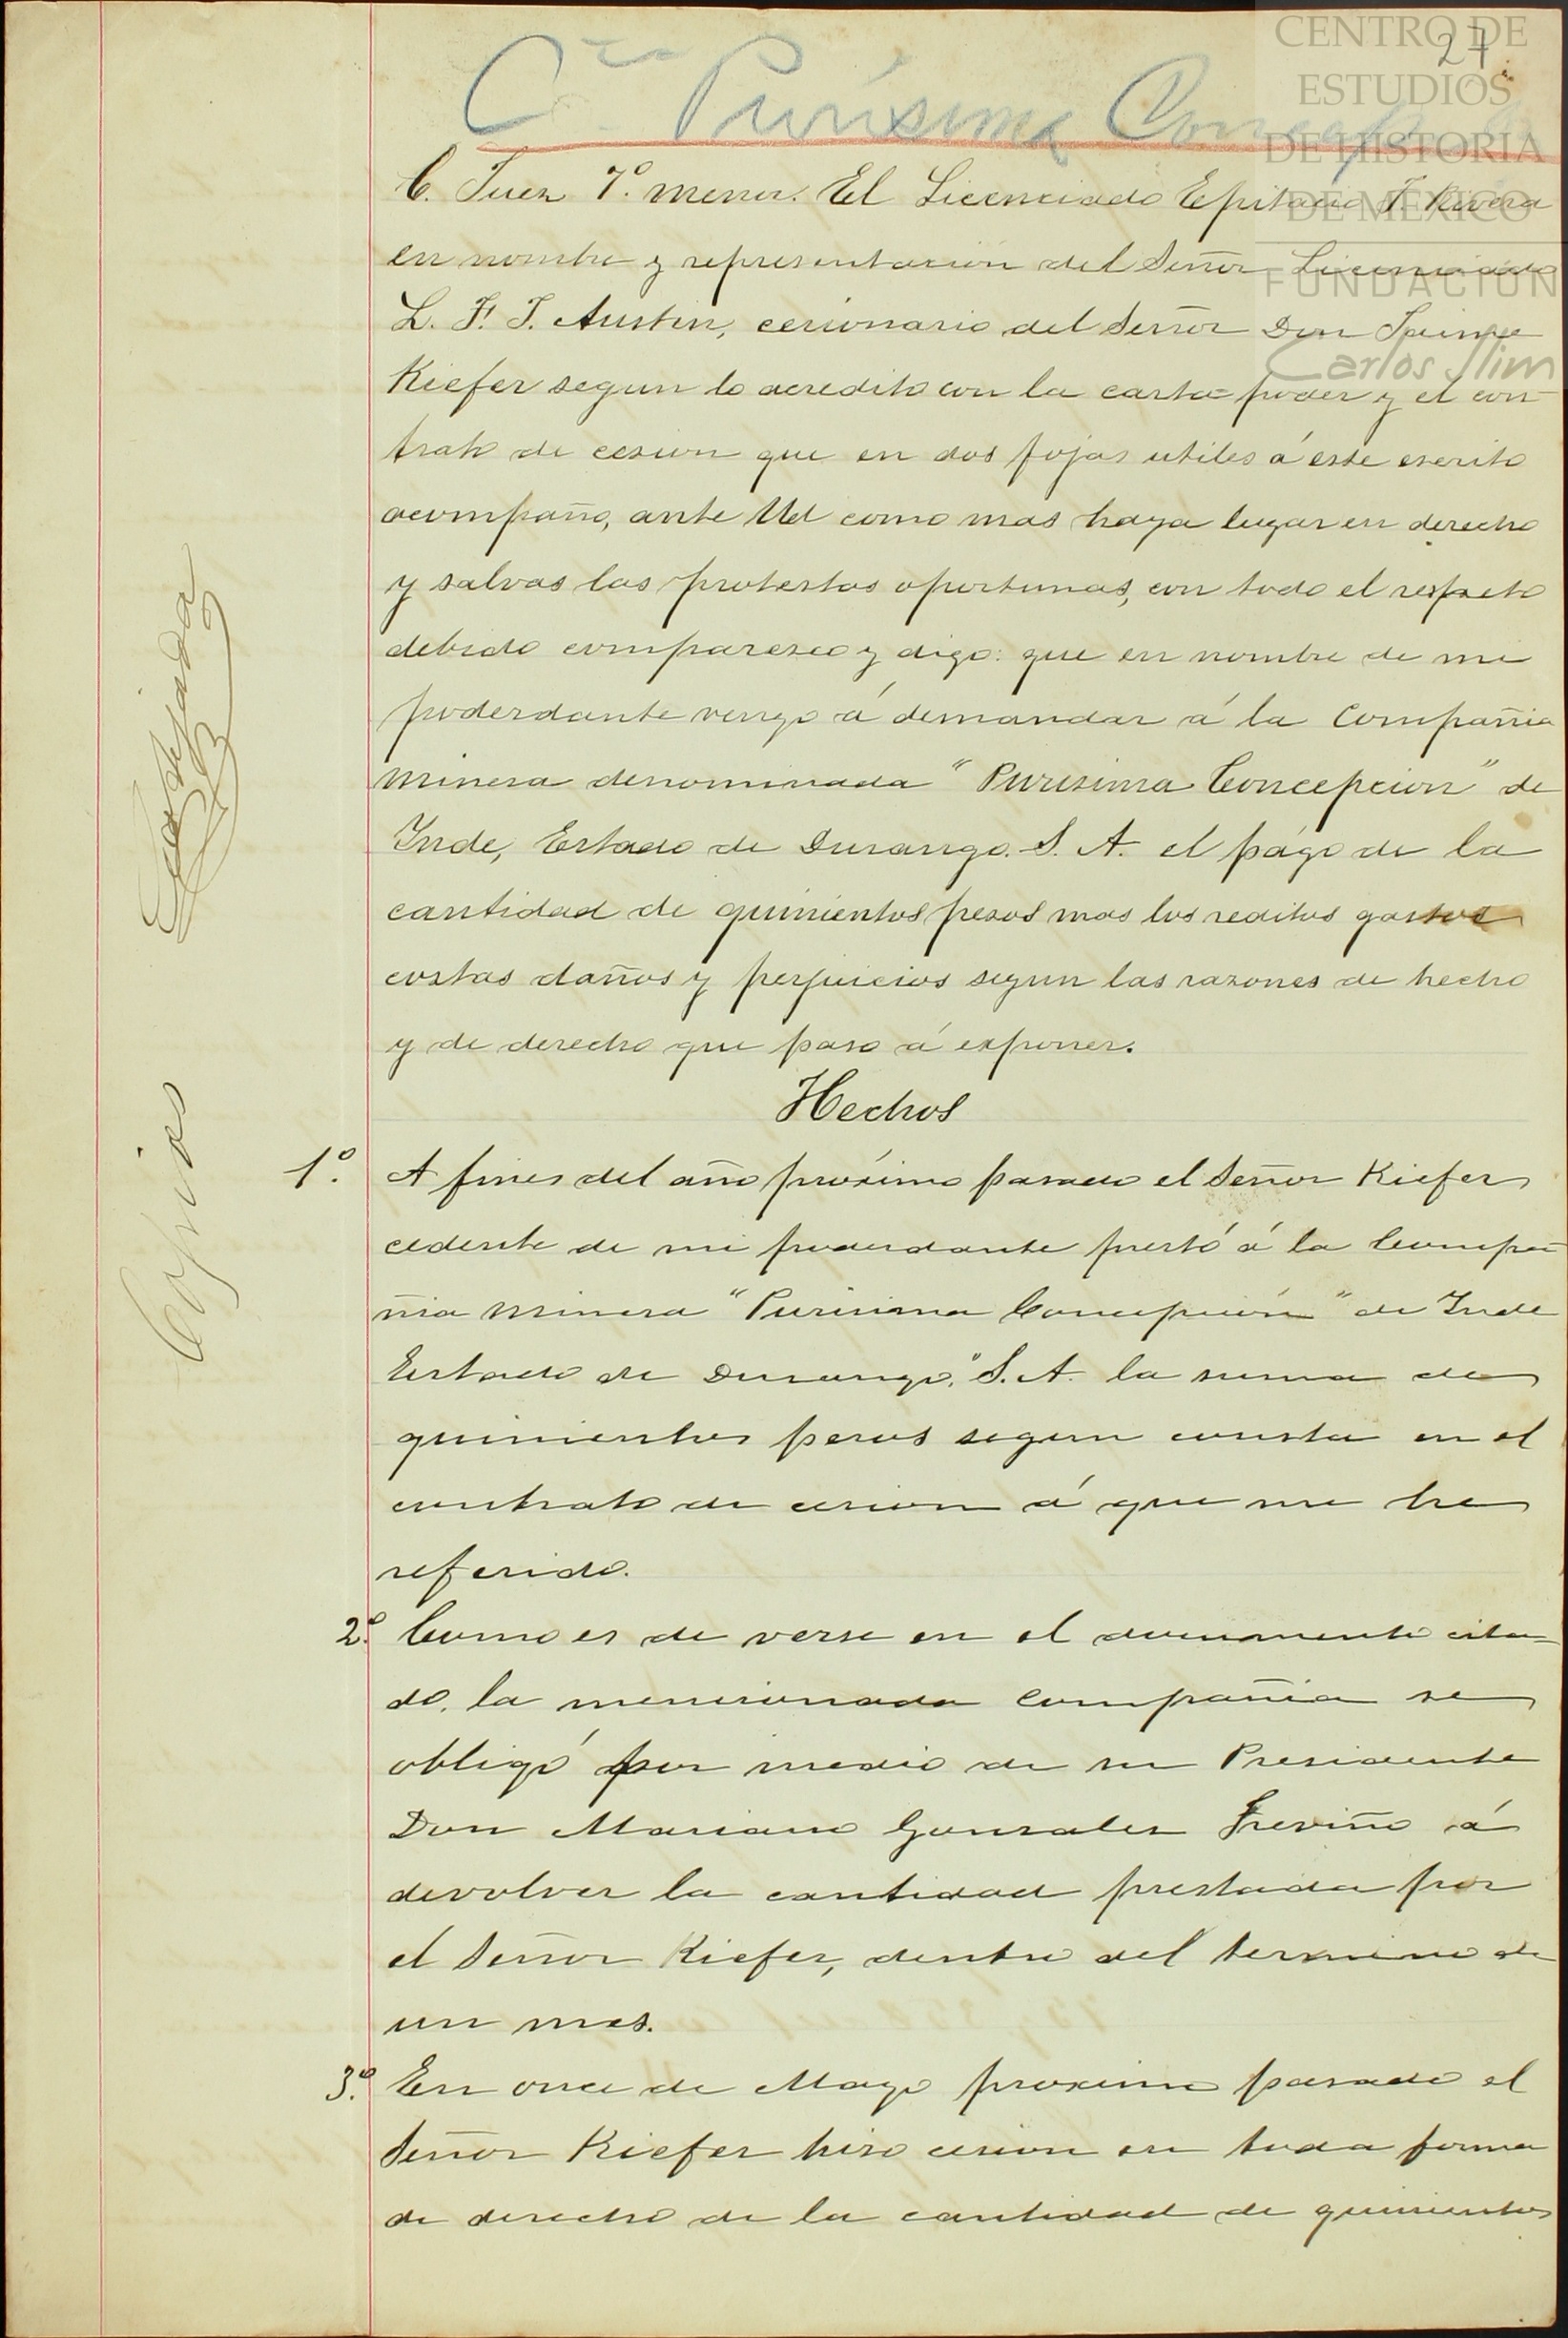 CENTRO DE
ESTUDIOS
DE HISTORIA
DE MÉXICO
FUNDACIÓN
Carlos Slim
27
Cía Purísima Concep
C. Juez 7º menor. El Licenciado Epitacio J. Rivera
en nombre y representacion del Señor Licenciado
L. F. J. Austin, cesionario del Señor Don Jaime
Kiefer segun lo acredito con la carta=poder y el con-
trato de cesion que en dos fojas utiles á este escrito
acompaño, ante Ud como mas haya lugar en derecho
y salvas las protestas oportunas, con todo el respeto
debido comparesco y digo: que en nombre de mi
poderdante vengo á demandar á la Compañia
Minera denominada "Purisima Concepcion" de
Inde, Estado de Durango. S. A. el págo de la
cantidad de quinientos pesos mas los reditos gastos
costas daños y perjuicios segun las razones de hecho
y de derecho que paso á exponer.
Hechos
1º. A fines del año próximo pasado el Señor Kiefer
cedente de mi poderdante prestó á la Compa-
ñia Minera "Purisima Concepción" de Inde
Estado de Durango." S. A. la suma de
quinientos pesos segun consta en el
contrato de cesion á que me he
referido.
2º. Como es de verse en el documento cita-
do, la mencionada Compañia se
obligó por medio de su Presidente
Don Mariano Gonzales Treviño á
devolver la cantidad prestada por
el Señor Kiefer, dentro del termino de
un mes.
3º. En once de Mayo proximo pasado el
Señor Kiefer hizo cesion en toda forma
de derecho de la cantidad de quinientos
Copias